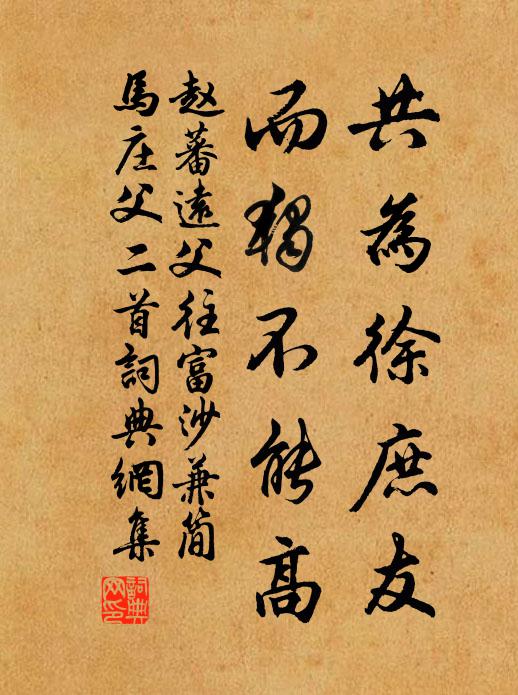 共為徐庶友
而獨不能高
赵蕃遠父往富沙兼简
馬庄父二首詞典網集
詞典网印